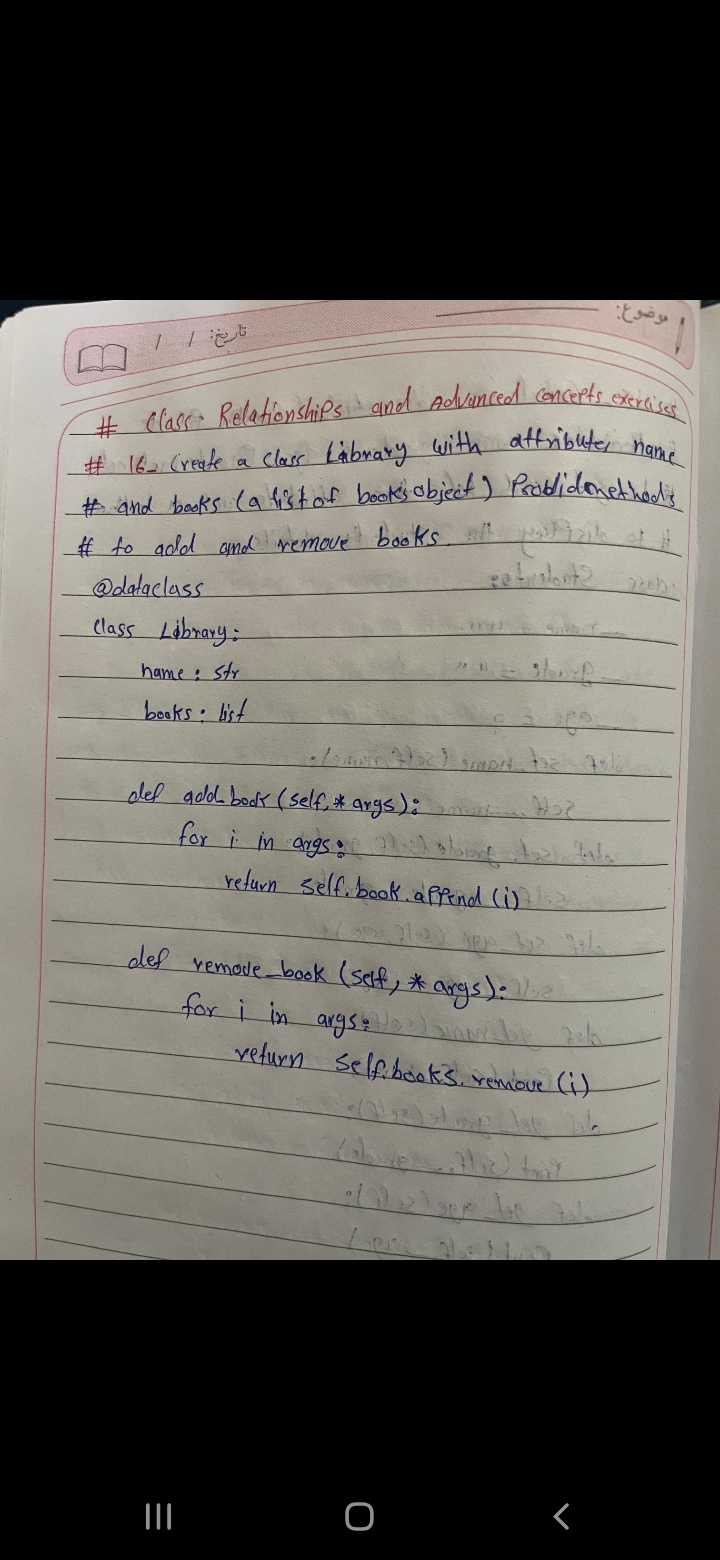 موضوع:
تاریخ: / /
# Class Relationships and Advanced concepts exercises
# 16_ Create a class Library with attributes name
# and books (a list of books object)
# to add and remove books.
@dataclass
class Library:
name: str
books: list
def add_book (self, * args):
for i in args:
return self.book.append (i)
def remove_book (self, * args):
for i in args:
return self.books.remove (i)